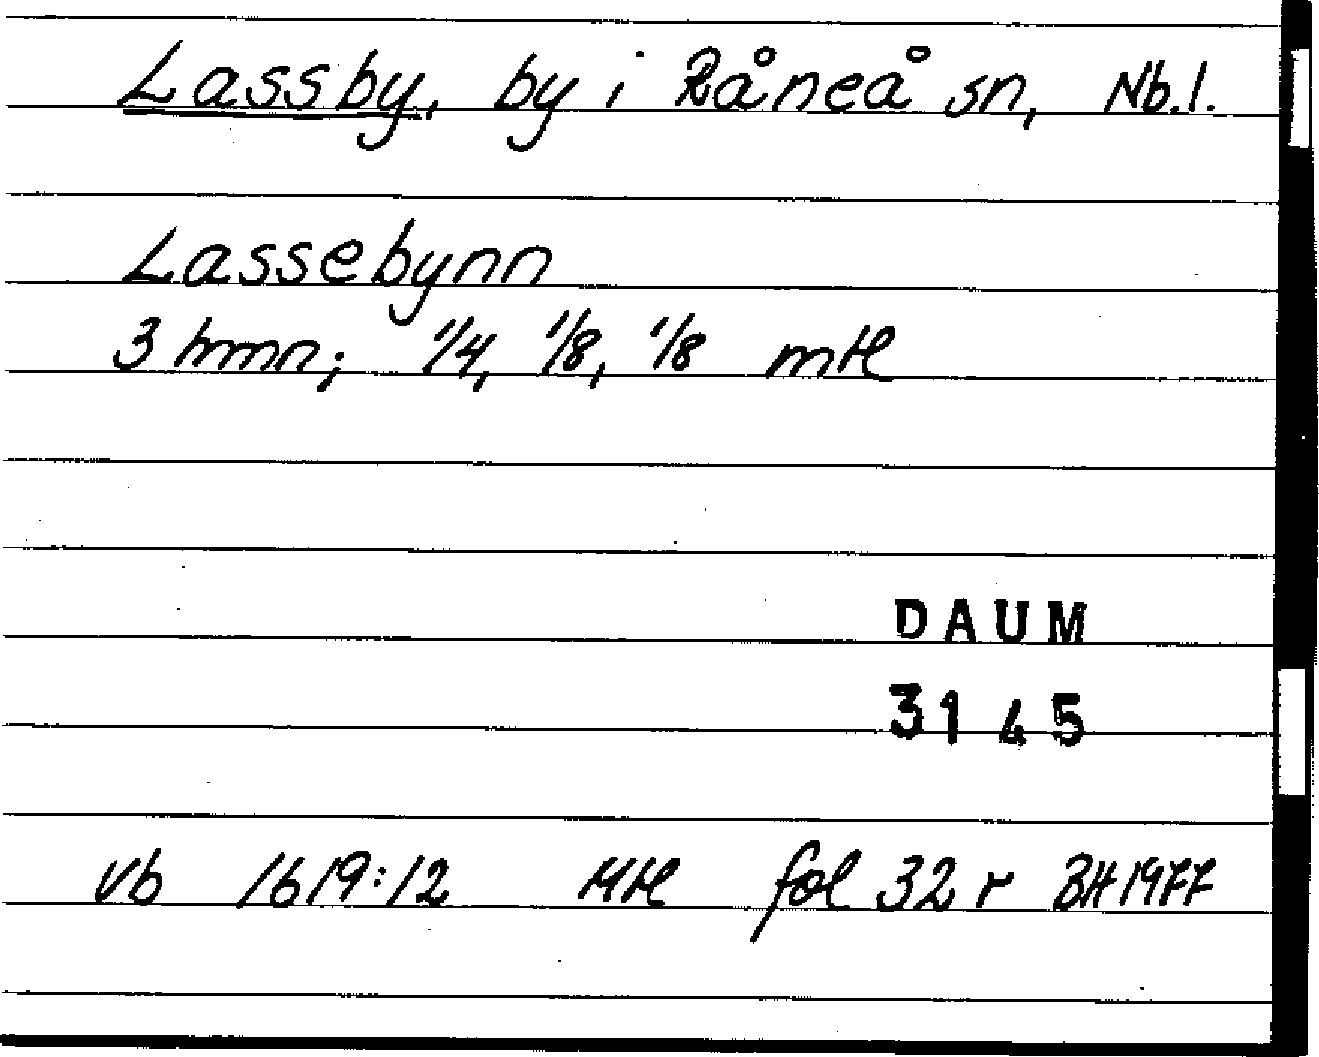 Lassby, by i Råneå sn, Nb.l.
Lassebynn
3 hmn; 1/4, 1/8, 1/8 mtl
DAUM
3145
Vb 1619:12 Mtl fol 32 r BH 1977